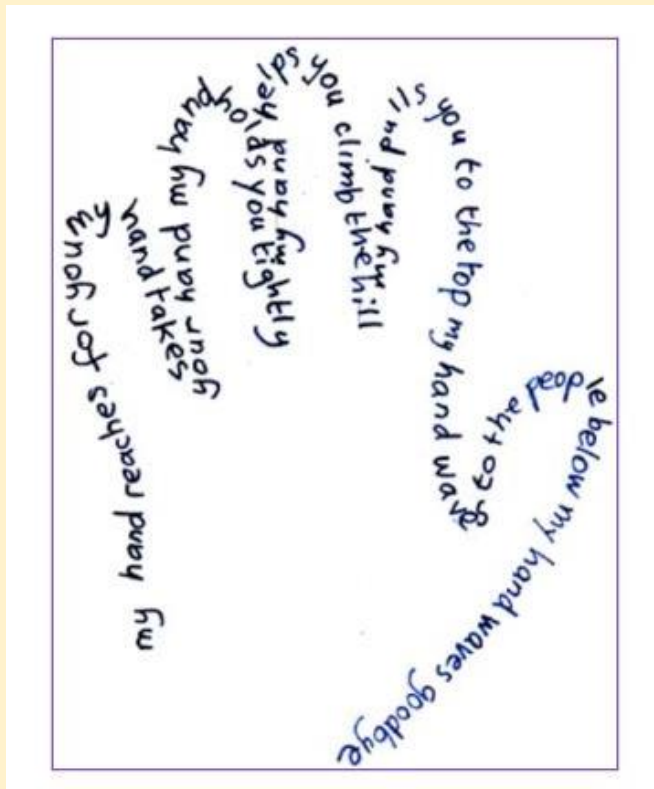 my hand reaches for you my hand takes your hand my hand holds you tightly my hand helps you climb the hill my hand pulls you to the top my hand waves to the people below my hand waves goodbye